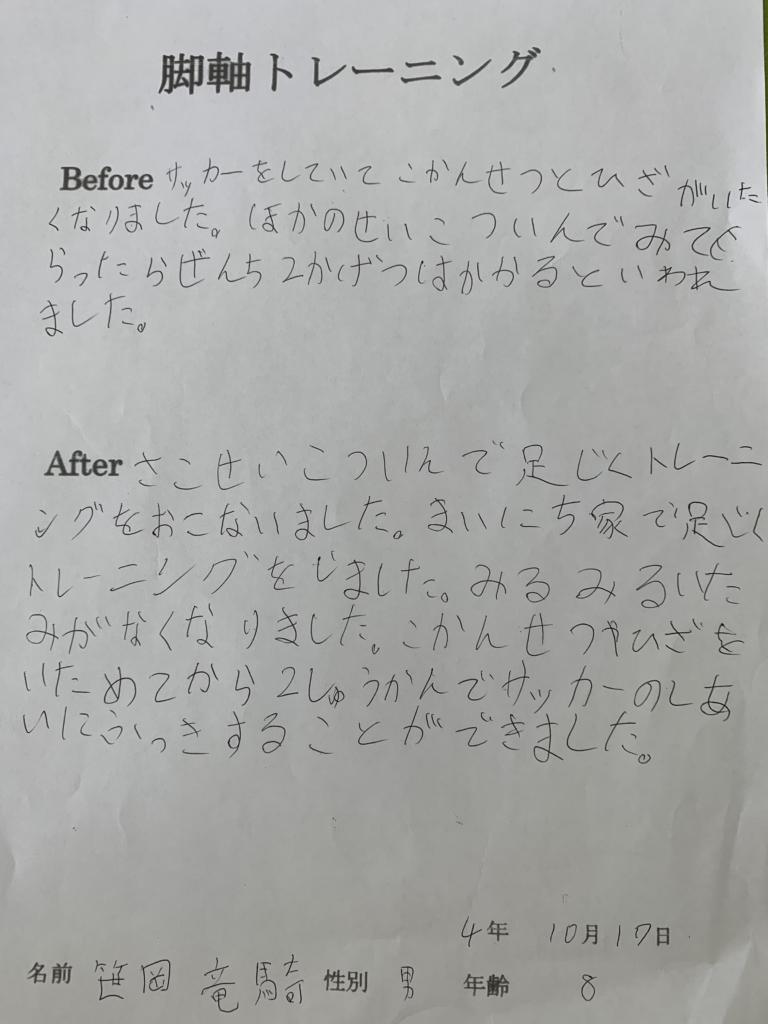 脚軸トレーニング
Before サッカーをしていて こかんせつとひざがいた
くなりました。ほかのせいこついんでみても
らったらぜんち2かげつはかかるといわれ
ました。
After さこせいこついんで足じくトレーニ
ングをおこないました。まいにち家で足じく
トレーニングをしました。みるみるいた
みがなくなりました。こかんせつやひざを
いためてから2しゅうかんでサッカーのしあ
いにふっきすることができました。
4年 10月17日
名前 笹岡 竜騎 性別 男 年齢 8